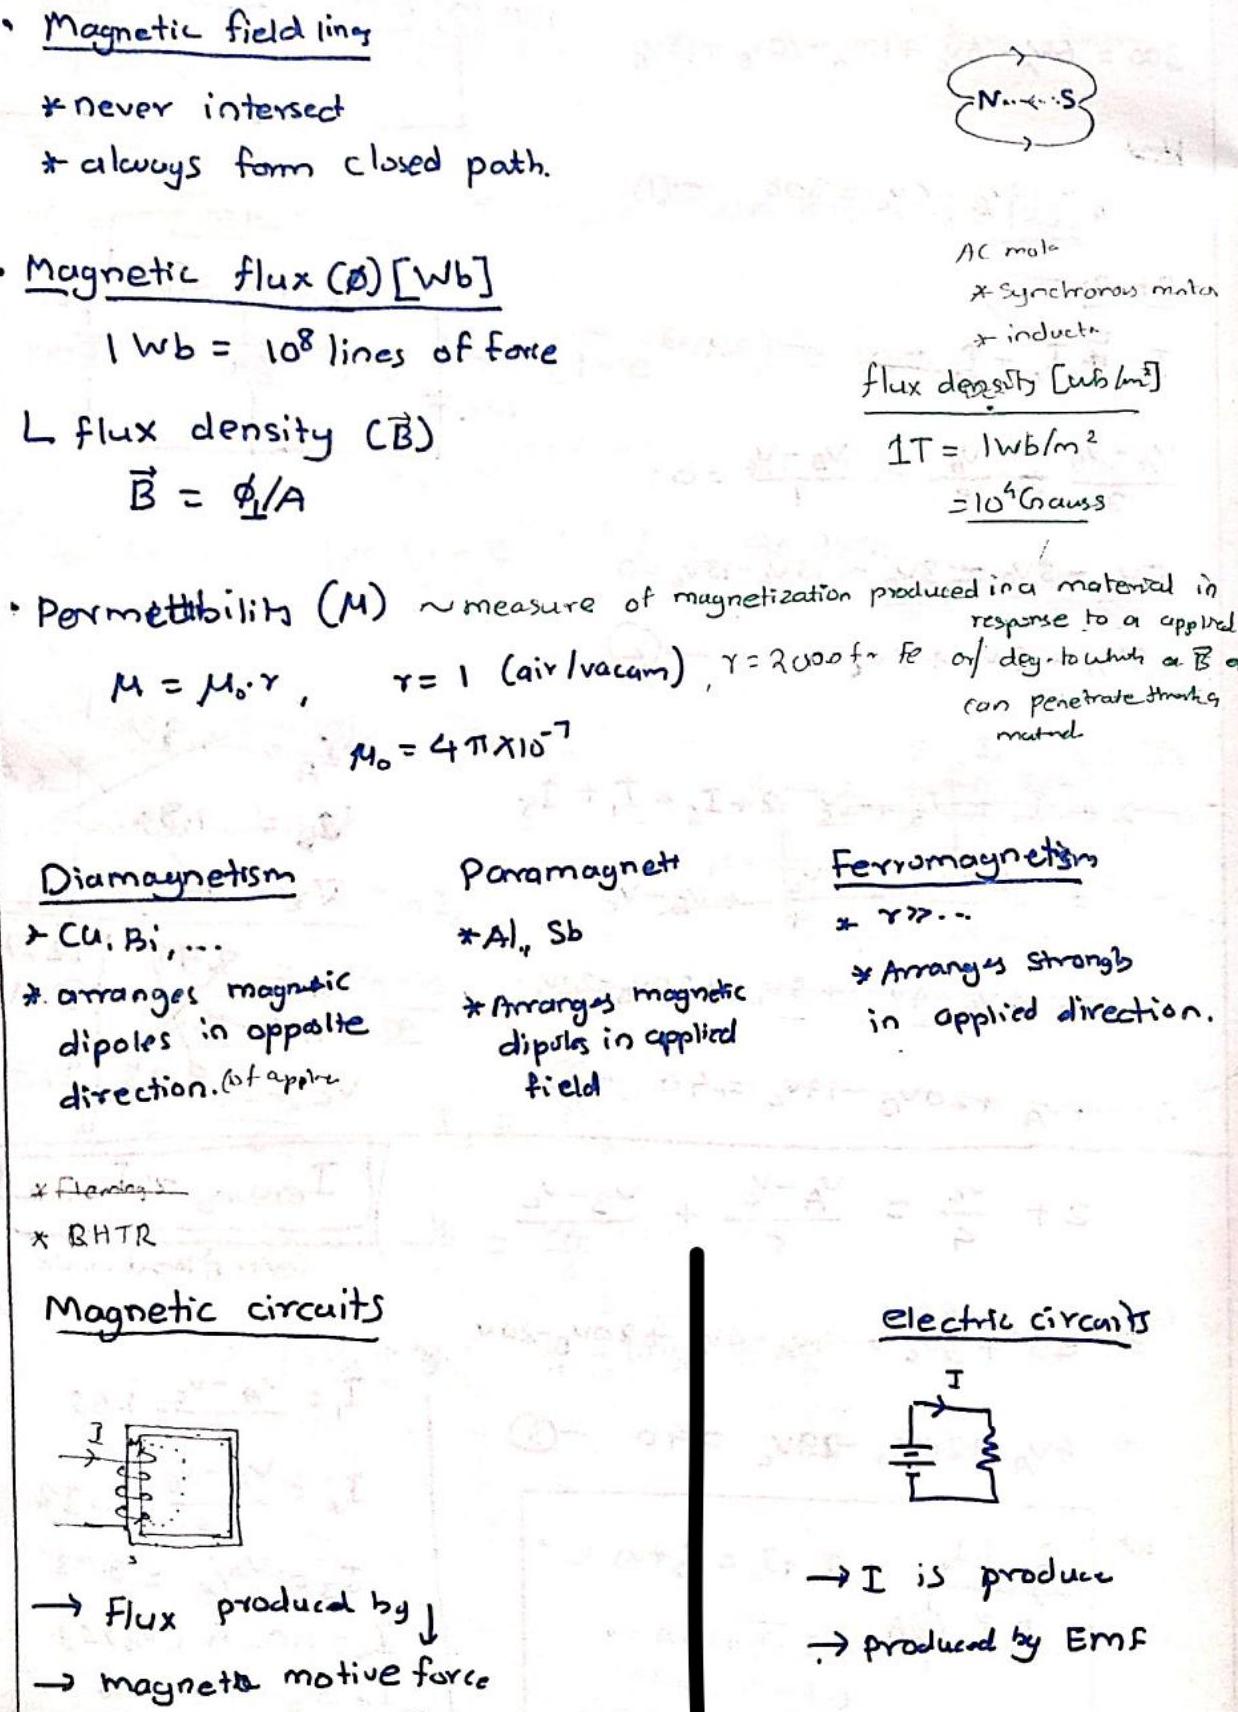 • Magnetic field lines
* never intersect
* always form closed path.
N S
• Magnetic flux (ϕ) [Wb]
1 Wb = 10⁸ lines of force
AC
* Synchronous motor
flux density [wb/m²]
1T = 1wb/m²
= 10⁴ Gauss
L flux density (B⃗)
B⃗ = ϕ⊥/A
(μ) ~ measure of magnetization produced in a material in
response to a applied
μ = μ₀·r , r = 1 (air/vacam) , r = 2000 for Fe or/ deg. to which a B⃗
can penetrate
μ₀ = 4π×10⁻⁷
Diamagnetism
* Cu, Bi, ...
* arranges magnetic
dipoles in opposite
direction. (of
Paramagnett
* Al., Sb
* Arranges magnetic
dipoles in applied
field
Ferromagnetism
* r>> ...
* Arranges strongly
in applied direction.
* Fleming's
* RHTR
Magnetic circuits
I
→ Flux produced by ↓
→ magneto motive force
electric circuits
I
→ I is produce
→ produced by Emf